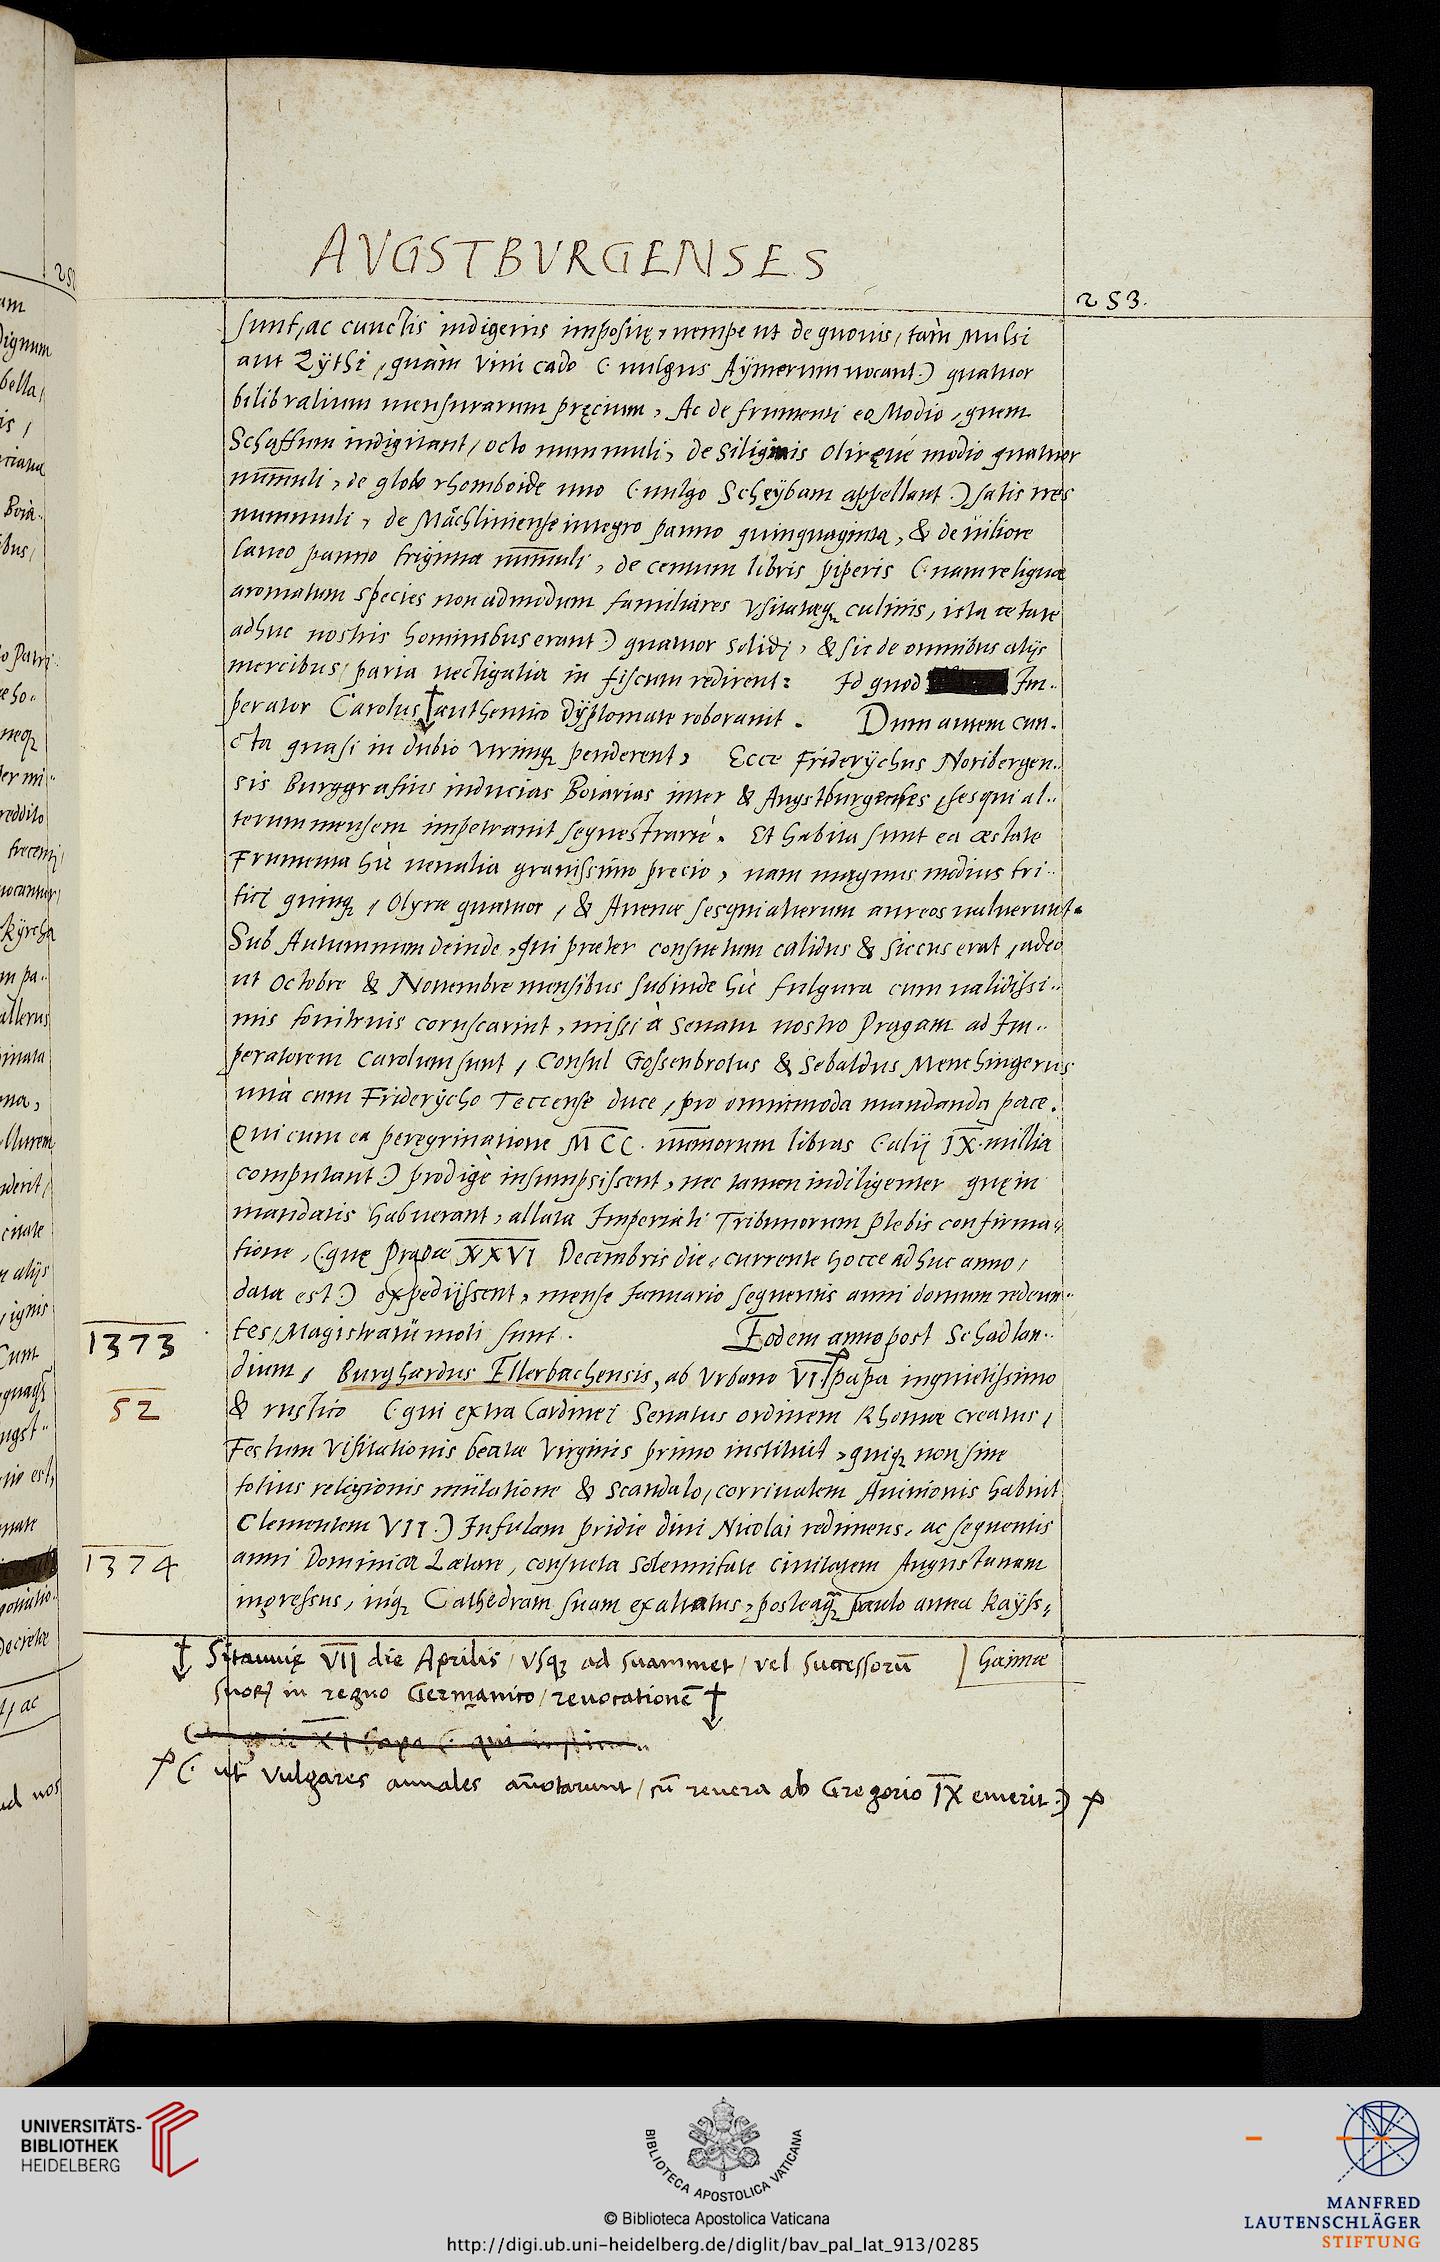 AVGSTBVRGENSES
253.
sunt, ac cunctis indigenis impositę, nempe ut de quouis, tàm Mulsi
aut Zÿthi, quàm Vini cado (: uulgus Aÿmerum uocant:) quatuor
bilibralium mensurarum pręcium, Ac de frumenti eo Modio, quem
Schaffum indigitant, octo nummuli, de Siliginis Oliręué modio quatuor
num̅uli, de globo rhomboide uno (: uulgo Scheÿbam appellant:) salis tres
nummuli, de Mächliniense integro panno quinquaginta, & de uiliore
laneo panno triginta num̅uli, de centum libris piperis (: nam reliquæ
aromatum species non admodum familiares Vsitatæq; culinis, ista ætate
adhuc nostris hominibus erant:) quatuor solidi, & sic de omnibus alijs
mercibus, paria uectigalia in fiscum redirent: Id quod Im..
perator Carolus authentico Dÿplomate roborauit. Dum autem cun..
cta quasi in dubio utrinq; penderent, Ecce Friderÿchus Noribergen..
sis Burggrafius inducias Boiarias inter & Augstburgenses, sesqui al..
terum mensem impetrauit sequestrariè. Et habita sunt ea æstate
Frumenta hic uenalia grauissimo precio, nam magnus modius tri..
tici quinq;, Olyræ quatuor, & Auenæ sesquialterum aureos ualuerunt.
Sub Autumnum deinde, qui præter consuetum calidus & siccus erat, adeò
ut Octobre & Nouembre mensibus subinde hic fulgura cum ualidissi..
mis tonitruis coruscarint, missi à Senatu nostro Pragam ad Im..
peratorem Carolum sunt, Consul Gossenbrotus & Sebaldus Menchingerus
unà cum Friderÿcho Teccense duce, pro omnimoda mandanda pace.
Qui cum ea peregrinatione MCC. num̅orum libras (: alij IX. millia
computant:) prodigè insumpsissent, nec tamen indiligenter quę in
mandatis habuerant, allata Imperiali Tribunorum plebis confirma..
tione, (: quę Pragæ XXVI Decembris die, currente hocce adhuc anno,
data est:) expedijssent, mense Januario sequentis anni domum redeun..
1373
tes, Magistratū moti sunt. Eodem anno post Schadlan..
dium, Burghardus Ellerbachensis, ab Vrbano VI papa inquietissimo
52
& rustico (: qui extra Cardinei Senatus ordinem Rhomæ creatus,
Festum Visitationis beatæ Virginis primo instituit, quiq; non sine
totius religionis mutatione & scandalo, corriualem Auinionis habuit
Clementem VII:) Infulam pridie diui Nicolai redimens, ac sequentis
1374
anni Dominica Lætare, consueta solemnitate ciuitatem Augustanam
ingressus, inq; Cathedram suam exaltatus, posteaq̃ paulo antea Kaÿss..
Sitauuię VII die Aprilis, vsq; ad suammet, vel successorū
suorꝫ in regno Germanico, reuocationē
(: ut vulgares annales an̅otarunt, cū reuera ab Gregorio IX emerit:)
UNIVERSITÄTS-
BIBLIOTHEK
HEIDELBERG
BIBLIOTECA APOSTOLICA VATICANA
© Biblioteca Apostolica Vaticana
http://digi.ub.uni-heidelberg.de/diglit/bav_pal_lat_913/0285
MANFRED
LAUTENSCHLÄGER
STIFTUNG